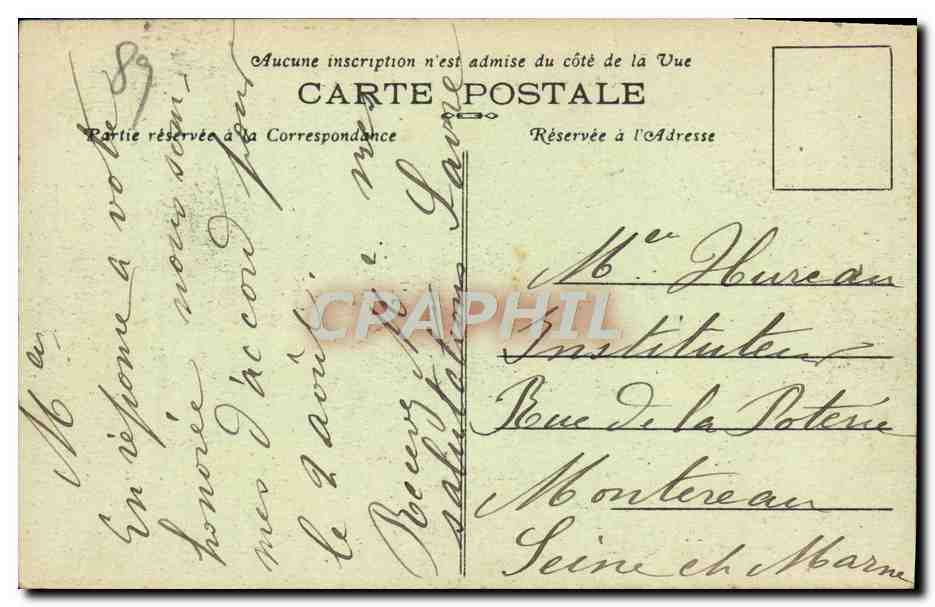 89
Aucune inscription n'est admise du côté de la Vue
CARTE POSTALE
Partie réservée à la Correspondance
Réservée à l'Adresse
En réponse à votre
honorée nous som-
mes d'accord pour
le 2 août
Recevez Mr mes
salutations
Mr Hureau
Instituteur
Rue de la Poterie
Montereau
Seine et Marne
CPAPHIL